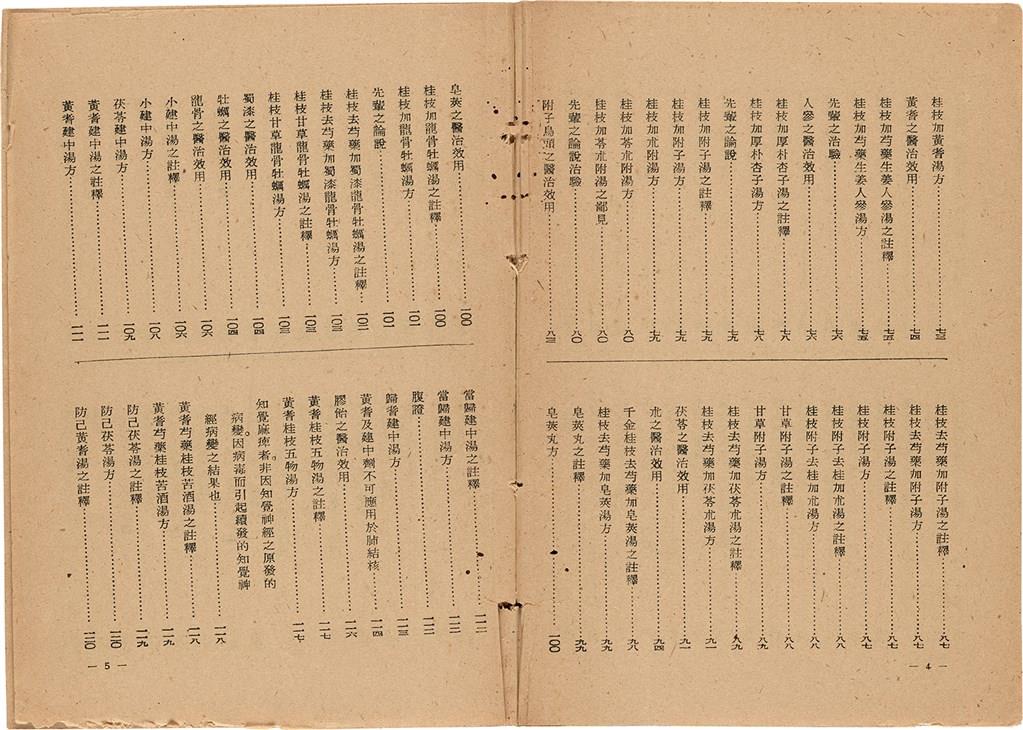 桂枝加黃耆湯方……七三
黃耆之醫治效用……七四
桂枝加芍藥生姜人參湯之註釋……七五
桂枝加芍藥生姜人參湯方……七五
先輩之治驗……七六
人參之醫治效用……七六
桂枝加厚朴杏子湯之註釋……七八
桂枝加厚朴杏子湯方……七八
先輩之論說……七九
桂枝加附子湯之註釋……七九
桂枝加附子湯方……七九
桂枝加朮附湯方……七九
桂枝加苓朮附湯方……八〇
桂枝加苓朮附湯之鄙見……八〇
先輩之論說治驗……八〇
附子烏頭之醫治效用……八三
桂枝去芍藥加附子湯之註釋……八七
桂枝去芍藥加附子湯方……八七
桂枝附子湯之註釋……八七
桂枝附子湯方……八七
桂枝附子去桂加朮湯之註釋……八八
桂枝附子去桂加朮湯方……八八
甘草附子湯之註釋……八八
甘草附子湯方……八九
桂枝去芍藥加茯苓朮湯之註釋……八九
桂枝去芍藥加茯苓朮湯方……九一
茯苓之醫治效用……九一
朮之醫治效用……九四
千金桂枝去芍藥加皂莢湯之註釋……九八
桂枝去芍藥加皂莢湯方……九九
皂莢丸之註釋……九九
皂莢丸方……一〇〇
— 4 —
皂莢之醫治效用……一〇〇
桂枝加龍骨牡蠣湯之註釋……一〇〇
桂枝加龍骨牡蠣湯方……一〇一
先輩之論說……一〇一
桂枝去芍藥加蜀漆龍骨牡蠣湯之註釋……一〇二
桂枝去芍藥加蜀漆龍骨牡蠣湯方……一〇三
桂枝甘草龍骨牡蠣湯之註釋……一〇三
桂枝甘草龍骨牡蠣湯方……一〇三
蜀漆之醫治效用……一〇四
牡蠣之醫治效用……一〇四
龍骨之醫治效用……一〇六
小建中湯之註釋……一〇六
小建中湯方……一〇八
茯苓建中湯方……一〇九
黃耆建中湯之註釋……一一一
黃耆建中湯方……一一一
當歸建中湯之註釋……一一二
當歸建中湯方……一一二
腹證……一一三
歸耆建中湯方……一一三
黃耆及建中劑不可應用於肺結核……一一四
膠飴之醫治效用……一一六
黃耆桂枝五物湯之註釋……一一七
黃耆桂枝五物湯方……一一七
知覺麻痺者。非因知覺神經之原發的
病變。因病毒而引起續發的知覺神
經病變之結果也……一一八
黃耆芍藥桂枝苦酒湯之註釋……一一八
黃耆芍藥桂枝苦酒湯方……一一九
防己茯苓湯之註釋……一一九
防己茯苓湯方……一二〇
防己黃耆湯之註釋……一二〇
— 5 —